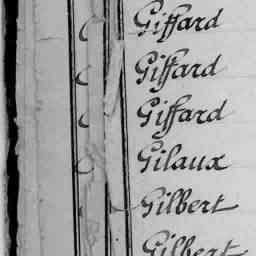 Giffard
Giffard
Giffard
Gilaux
Gilbert
Gilbert